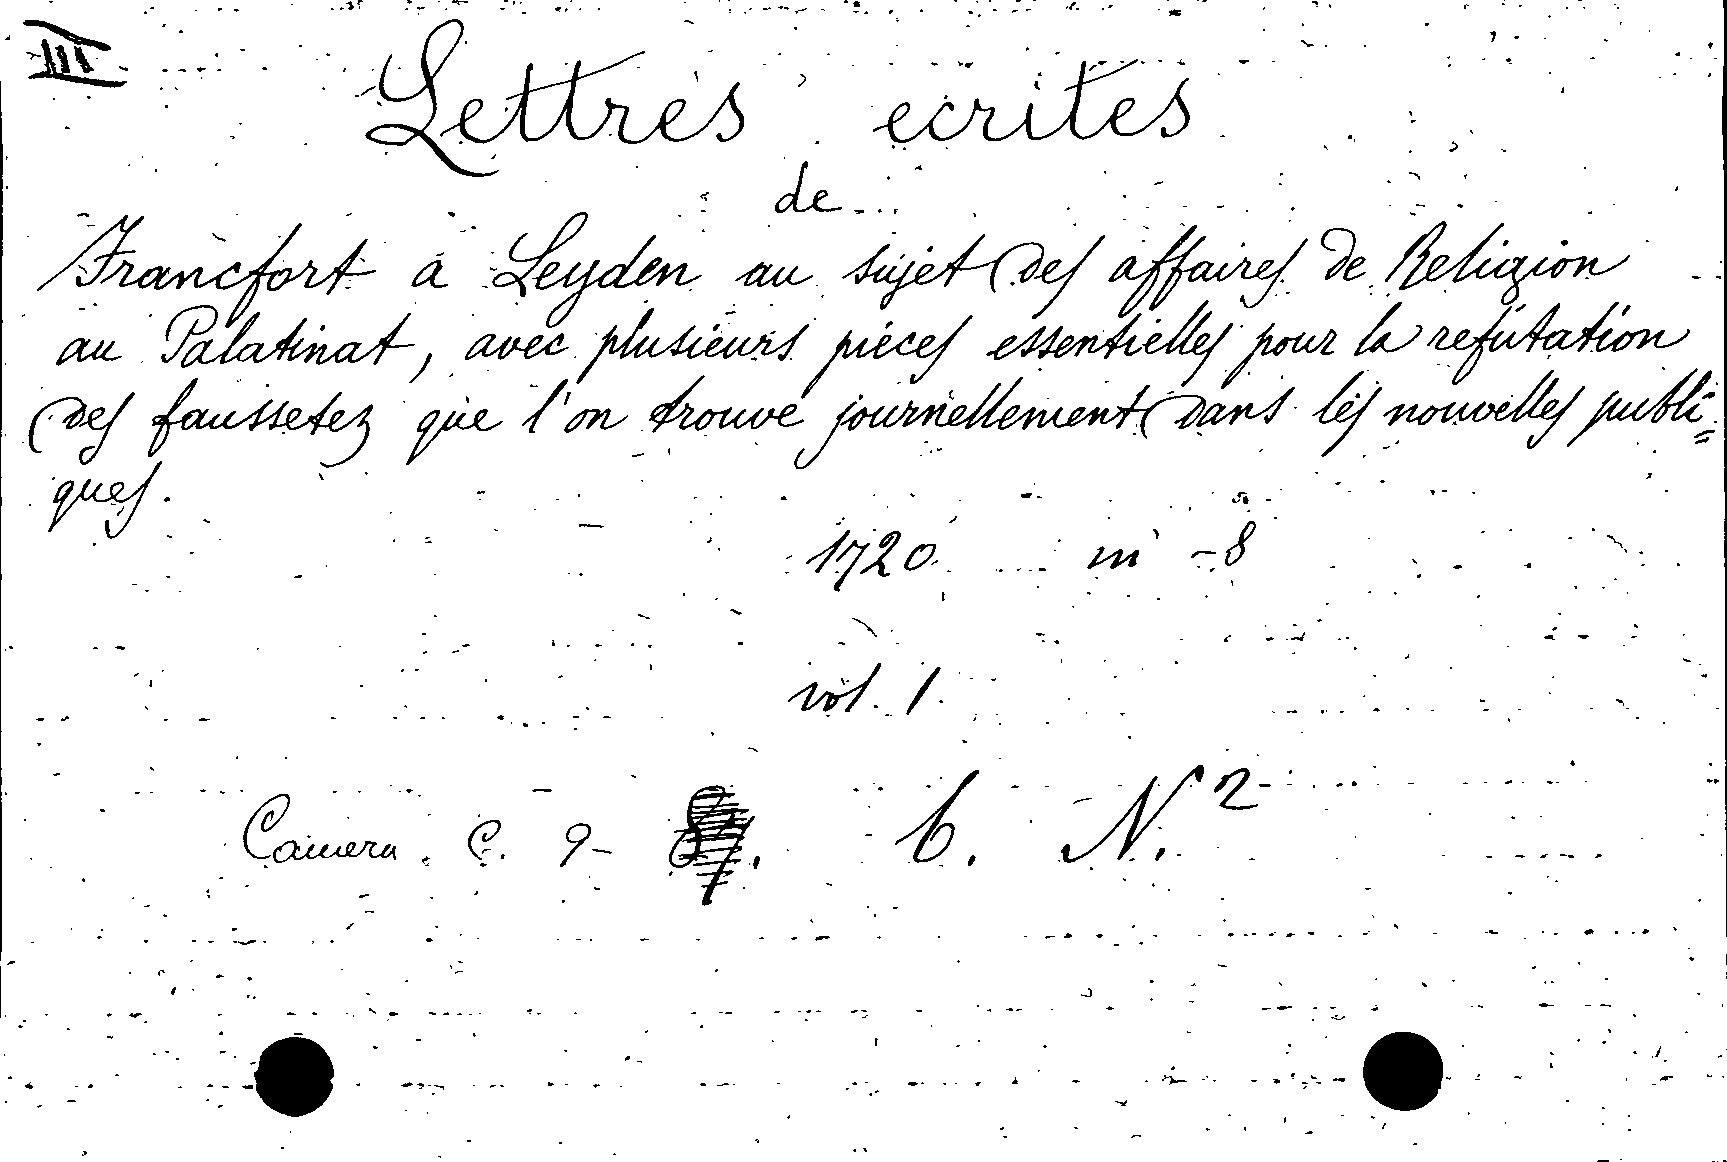 III
Lettres ecrites
de
Francfort a Leyden au sujet des affaires de Religion
au Palatinat, avec plusieurs pièces essentielles pour la refutation
des faussetez que l'on trouve journellement dans les nouvelles publi=
ques.
1720 in -8
vol. 1.
Camera. C. 9- 6. N. 2